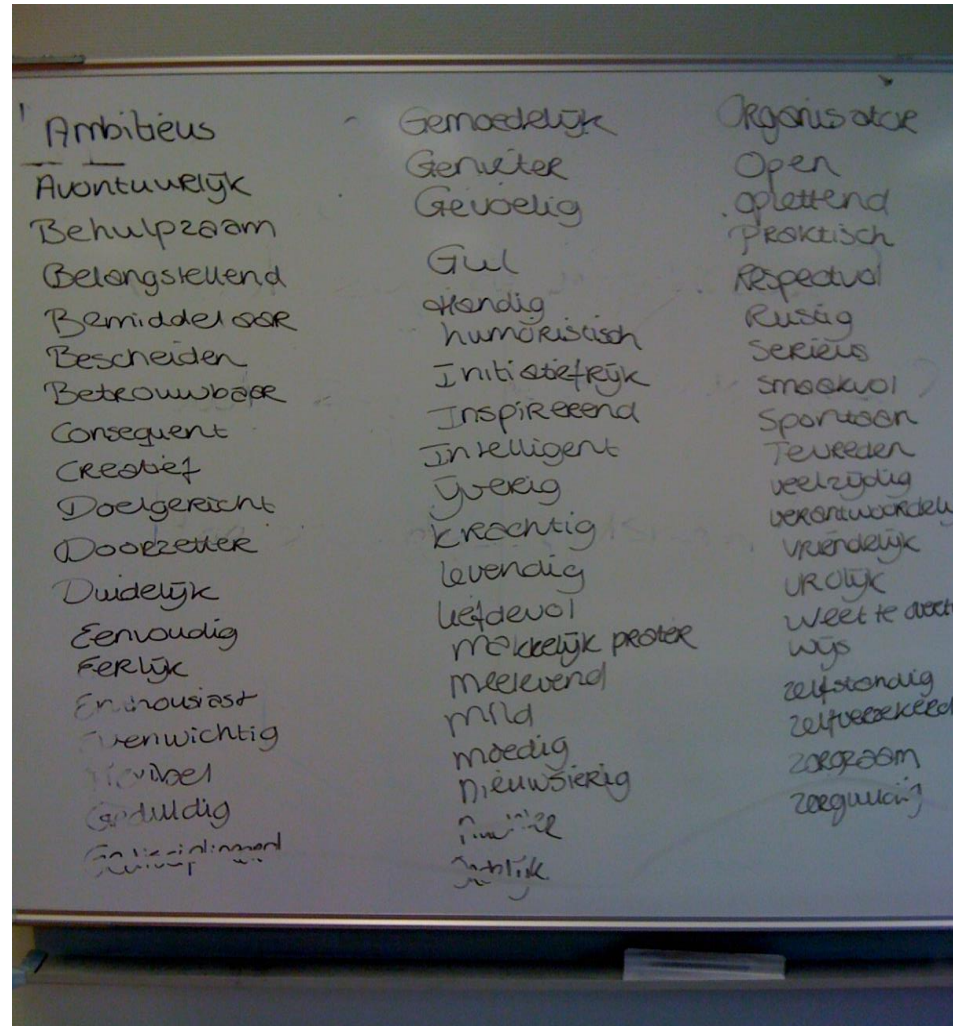 Ambitieus
Avontuurlijk
Behulpzaam
Belangstellend
Bemiddelaar
Bescheiden
Betrouwbaar
Consequent
Creatief
Doelgericht
Doorzetter
Duidelijk
Eenvoudig
Eerlijk
Enthousiast
Evenwichtig
Flexibel
Geduldig
Gedisciplineerd
Gemoedelijk
Genieter
Gevoelig
Gul
Handig
humoristisch
Initiatiefrijk
Inspirerend
Intelligent
ijverig
krachtig
levendig
liefdevol
makkelijk prater
meelevend
mild
moedig
nieuwsierig
Organisator
Open
oplettend
Praktisch
Respectvol
Rustig
Serieus
smaakvol
Spontaan
Tevreden
veelzijdig
verantwoordelij
vriendelijk
vrolijk
weet te
wijs
zelfstandig
zelfverzekerd
zorgzaam